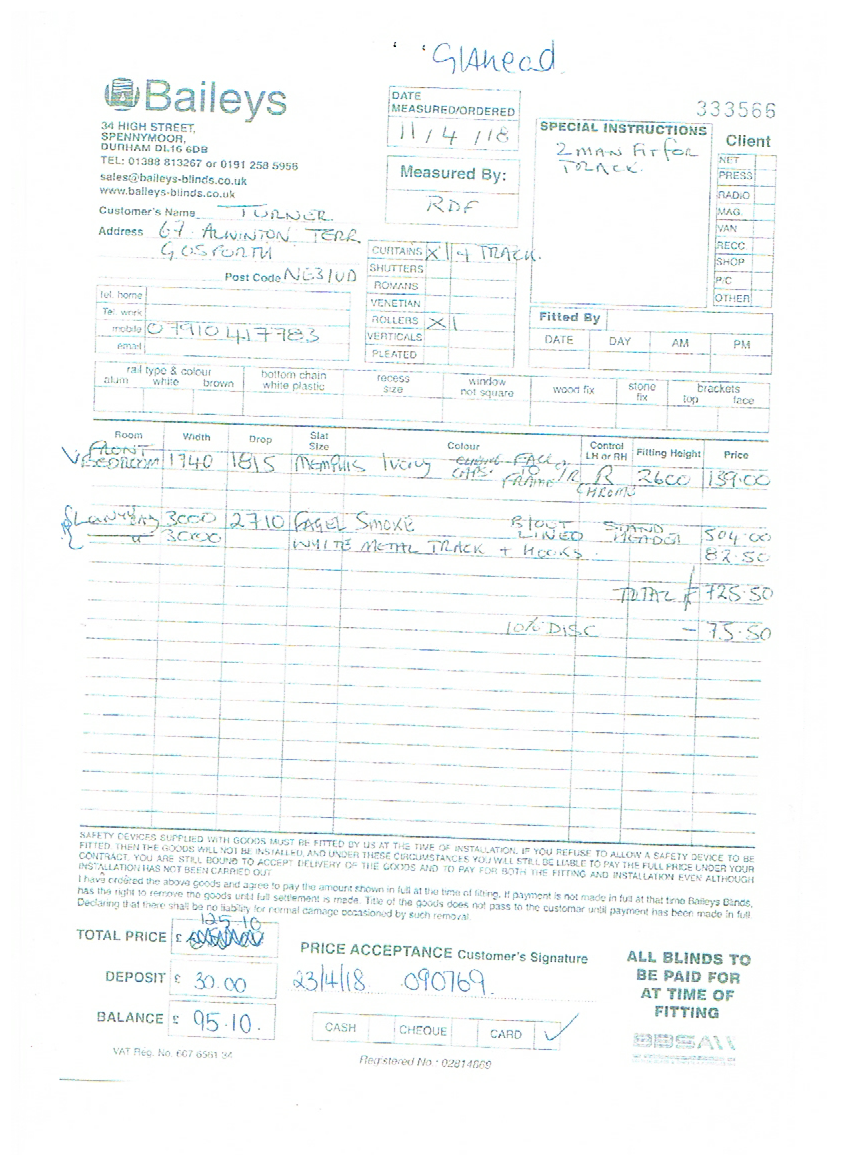 GIAhead
Baileys
34 HIGH STREET,
SPENNYMOOR,
DURHAM DL16 6DB
TEL: 01388 813267 or 0191 258 5956
sales@baileys-blinds.co.uk
www.baileys-blinds.co.uk
DATE
MEASURED/ORDERED
11/4/18
Measured By:
RDF
333566
SPECIAL INSTRUCTIONS
2 MAN FIT FOR
TRACK.
Client
NET
PRESS
RADIO
MAG.
VAN
RECC
SHOP
P/C
OTHER
Customer's Name TURNER
Address 67 ALWINTON TERR
GOSFORTH
Post Code NE3 1UD
Tel. home
Tel. work
mobile 07910417783
email
CURTAINS X 1 + TRACK.
SHUTTERS
ROMANS
VENETIAN
ROLLERS X 1
VERTICALS
PLEATED
Fitted By
DATE DAY AM PM
rail type & colour
alum white brown
bottom chain
white plastic
recess
size
window
not square
wood fix
stone
fix
brackets
top face
Room Width Drop Slat Size Colour Control LH or RH Fitting Height Price
FRONT
BEDROOM 1740 1815 MEMPHIS Ivory FRAME R CHROME 2600 139.00
3000 2710 FAGEL SMOKE B/OUT LINED STAND HEADER 504.00
" 3000 WHITE METAL TRACK + HOOKS. 82.50
TOTAL £ 725.50
10% DISC - 75.50
SAFETY DEVICES SUPPLIED WITH GOODS MUST BE FITTED BY US AT THE TIME OF INSTALLATION. IF YOU REFUSE TO ALLOW A SAFETY DEVICE TO BE
FITTED THEN THE GOODS WILL NOT BE INSTALLED, AND UNDER THESE CIRCUMSTANCES YOU WILL STILL BE LIABLE TO PAY THE FULL PRICE UNDER YOUR
CONTRACT. YOU ARE STILL BOUND TO ACCEPT DELIVERY OF THE GOODS AND TO PAY FOR BOTH THE FITTING AND INSTALLATION EVEN ALTHOUGH
INSTALLATION HAS NOT BEEN CARRIED OUT
I have ordered the above goods and agree to pay the amount shown in full at the time of fitting. If payment is not made in full at that time Baileys Blinds,
has the right to remove the goods until full settlement is made. Title of the goods does not pass to the customer until payment has been made in full.
Declaring that there shall be no liability for normal damage occasioned by such removal
125.10
TOTAL PRICE £
DEPOSIT £ 30.00
BALANCE £ 95.10.
PRICE ACCEPTANCE Customer's Signature
23/4/18 090769.
CASH CHEQUE CARD ✓
ALL BLINDS TO
BE PAID FOR
AT TIME OF
FITTING
VAT Reg. No. 667 6561 34
Registered No : 02814669